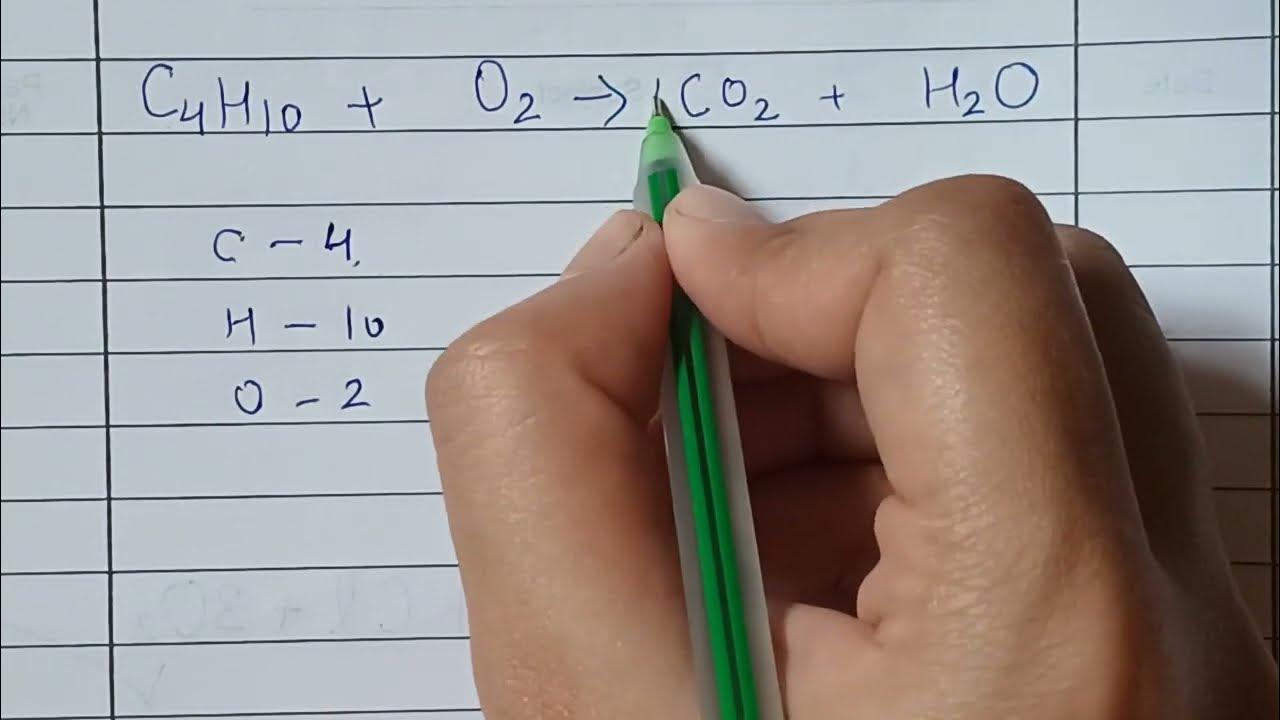 C₄H₁₀ + O₂ → CO₂ + H₂O
C – 4
H – 10
O – 2